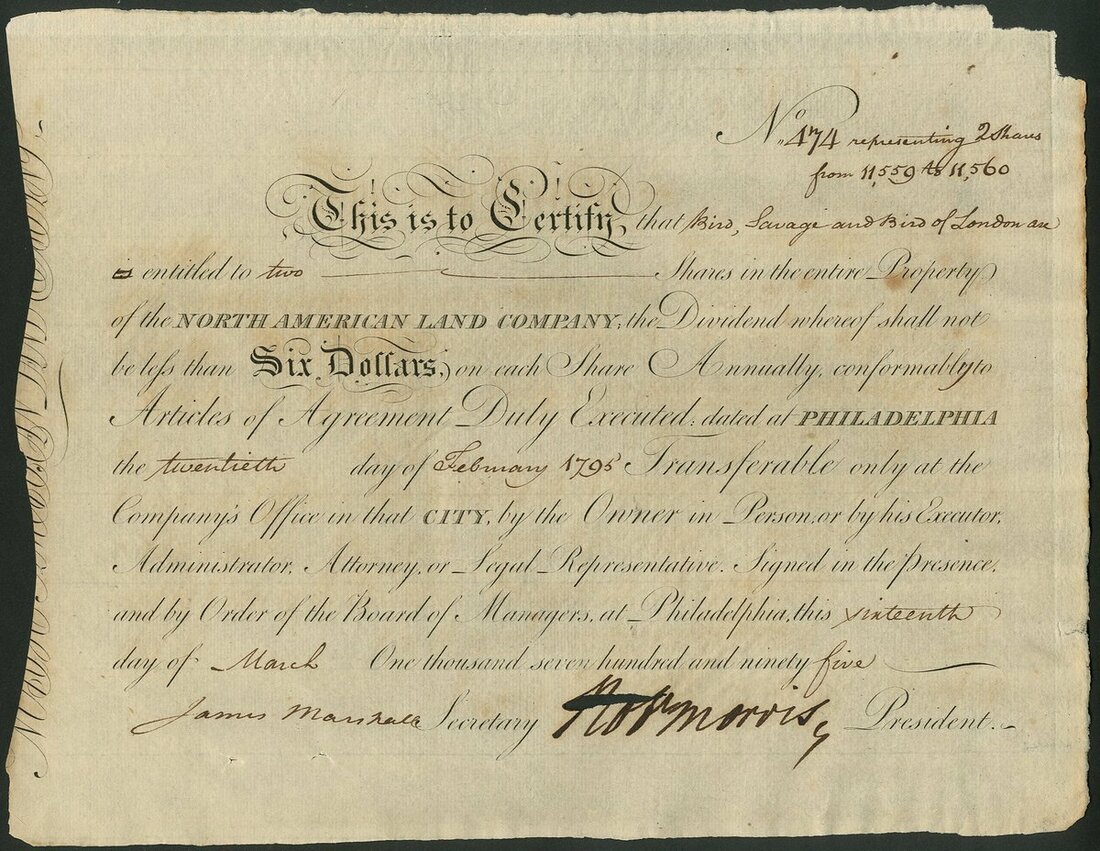 No. 474 representing 2 Shares
from 11,559 to 11,560
This is to Certify, that Bird, Savage and Bird of London are
is entitled to two Shares in the entire Property
of the NORTH AMERICAN LAND COMPANY, the Dividend whereof shall not
be less than Six Dollars, on each Share Annually, conformably to
Articles of Agreement Duly Executed: dated at PHILADELPHIA
the twentieth day of February 1795 Transferable only at the
Company's Office in that CITY, by the Owner in Person, or by his Executor,
Administrator, Attorney, or Legal Representative. Signed in the presence,
and by Order of the Board of Managers, at Philadelphia, this sixteenth
day of March One thousand seven hundred and ninety five
James Marshall Secretary Robt Morris, President.